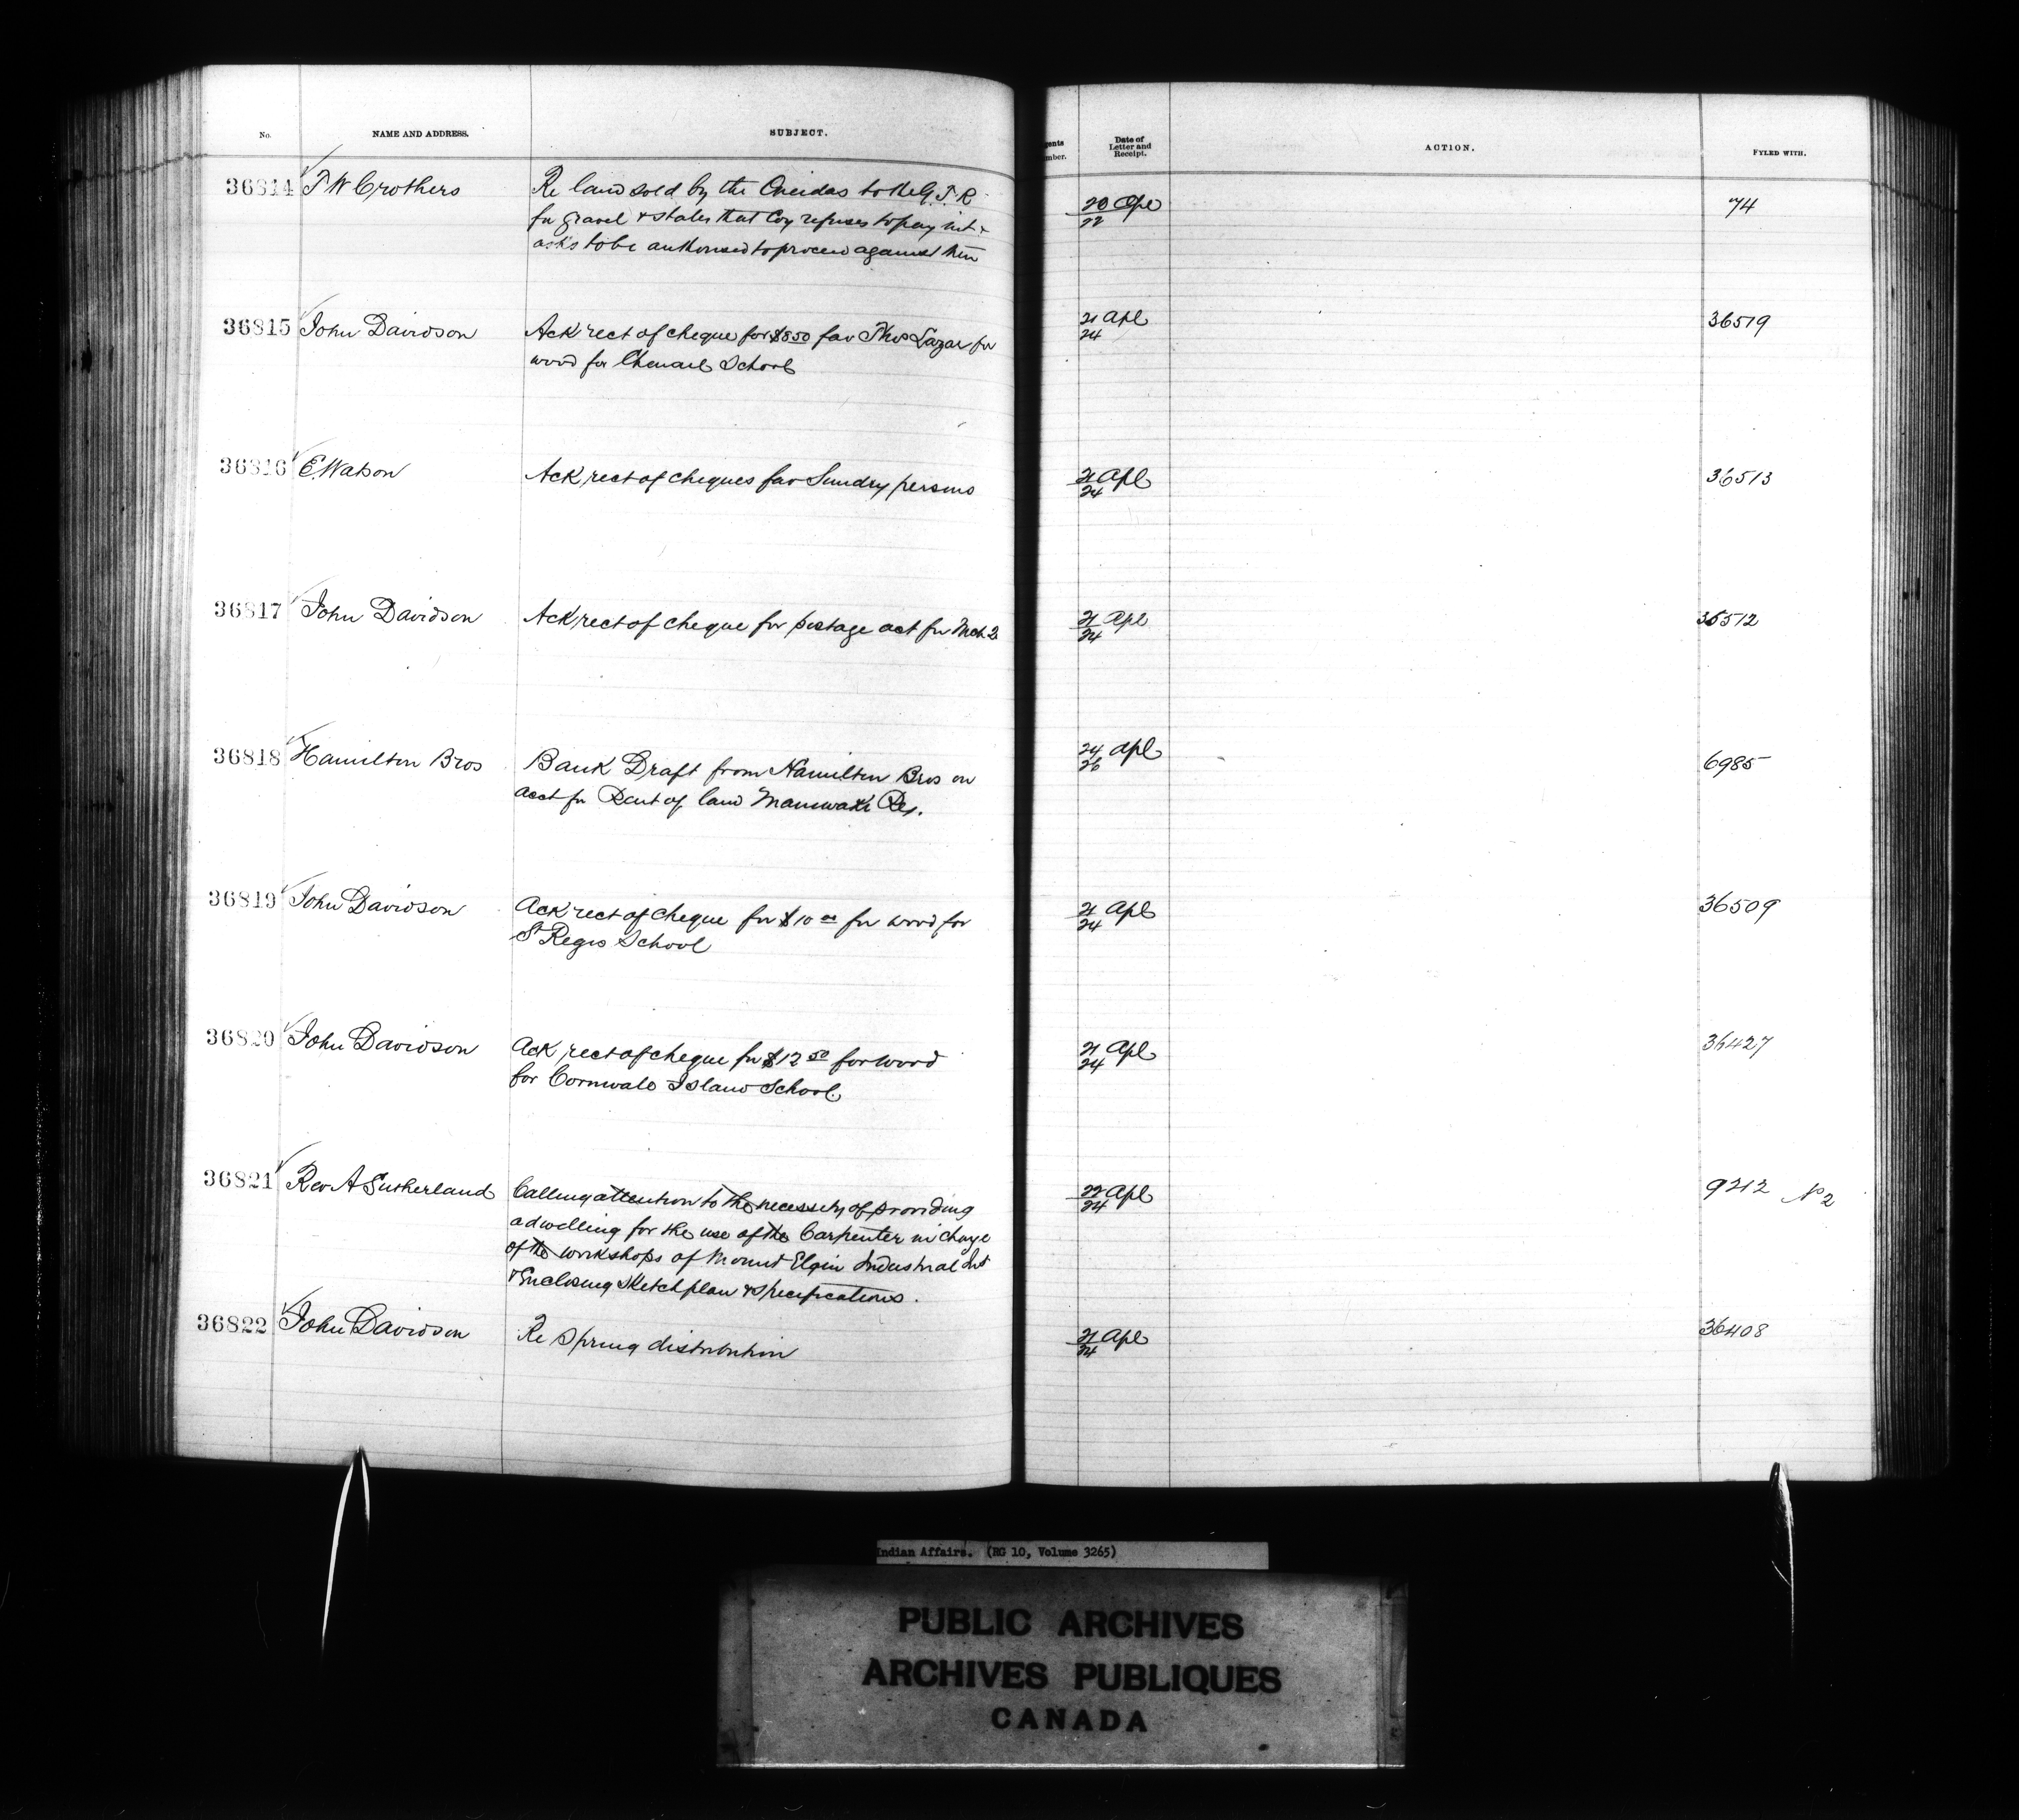 No. NAME AND ADDRESS. SUBJECT. gents mber. Date of Letter and Receipt. ACTION. FYLED WITH.
36814 T W Crothers Re land sold by the Oneidas to the G. T. R 20 Apl 74
for gravel & states that Coy refuses to pay int & 22
asks to be authorised to proceed against them
36815 John Davidson Ack rect of cheque for $8.50 fav Thos Lazar for 21 Apl 36519
wood for Chenail School 24
36816 E. Watson Ack rect of cheques fav Sundry persons 21 Apl 36513
24
36817 John Davidson Ack rect of cheque for postage act for Mch 2 21 Apl 36512
24
36818 Hamilton Bros Bank Draft from Hamilton Bros on 24 Apl 6985
acct for Rent of land Maniwaki Res. 26
36819 John Davidson Ack rect of cheque for $10 00 for wood for 21 Apl 36509
St Regis School 24
36820 John Davidson Ack rect of cheque for $12 50 for wood 21 Apl 36427
for Cornwall Island School. 24
36821 Rev A Sutherland Calling attention to the necessity of providing 22 Apl 9212 No 2
a dwelling for the use of the Carpenter in charge 24
of the workshops of Mount Elgin Industrial Inst
& Enclosing Sketch plan & specifications.
36822 John Davidson Re Spring distribution 21 Apl 36408
24
Indian Affairs. (RG 10, Volume 3265)
PUBLIC ARCHIVES
ARCHIVES PUBLIQUES
CANADA